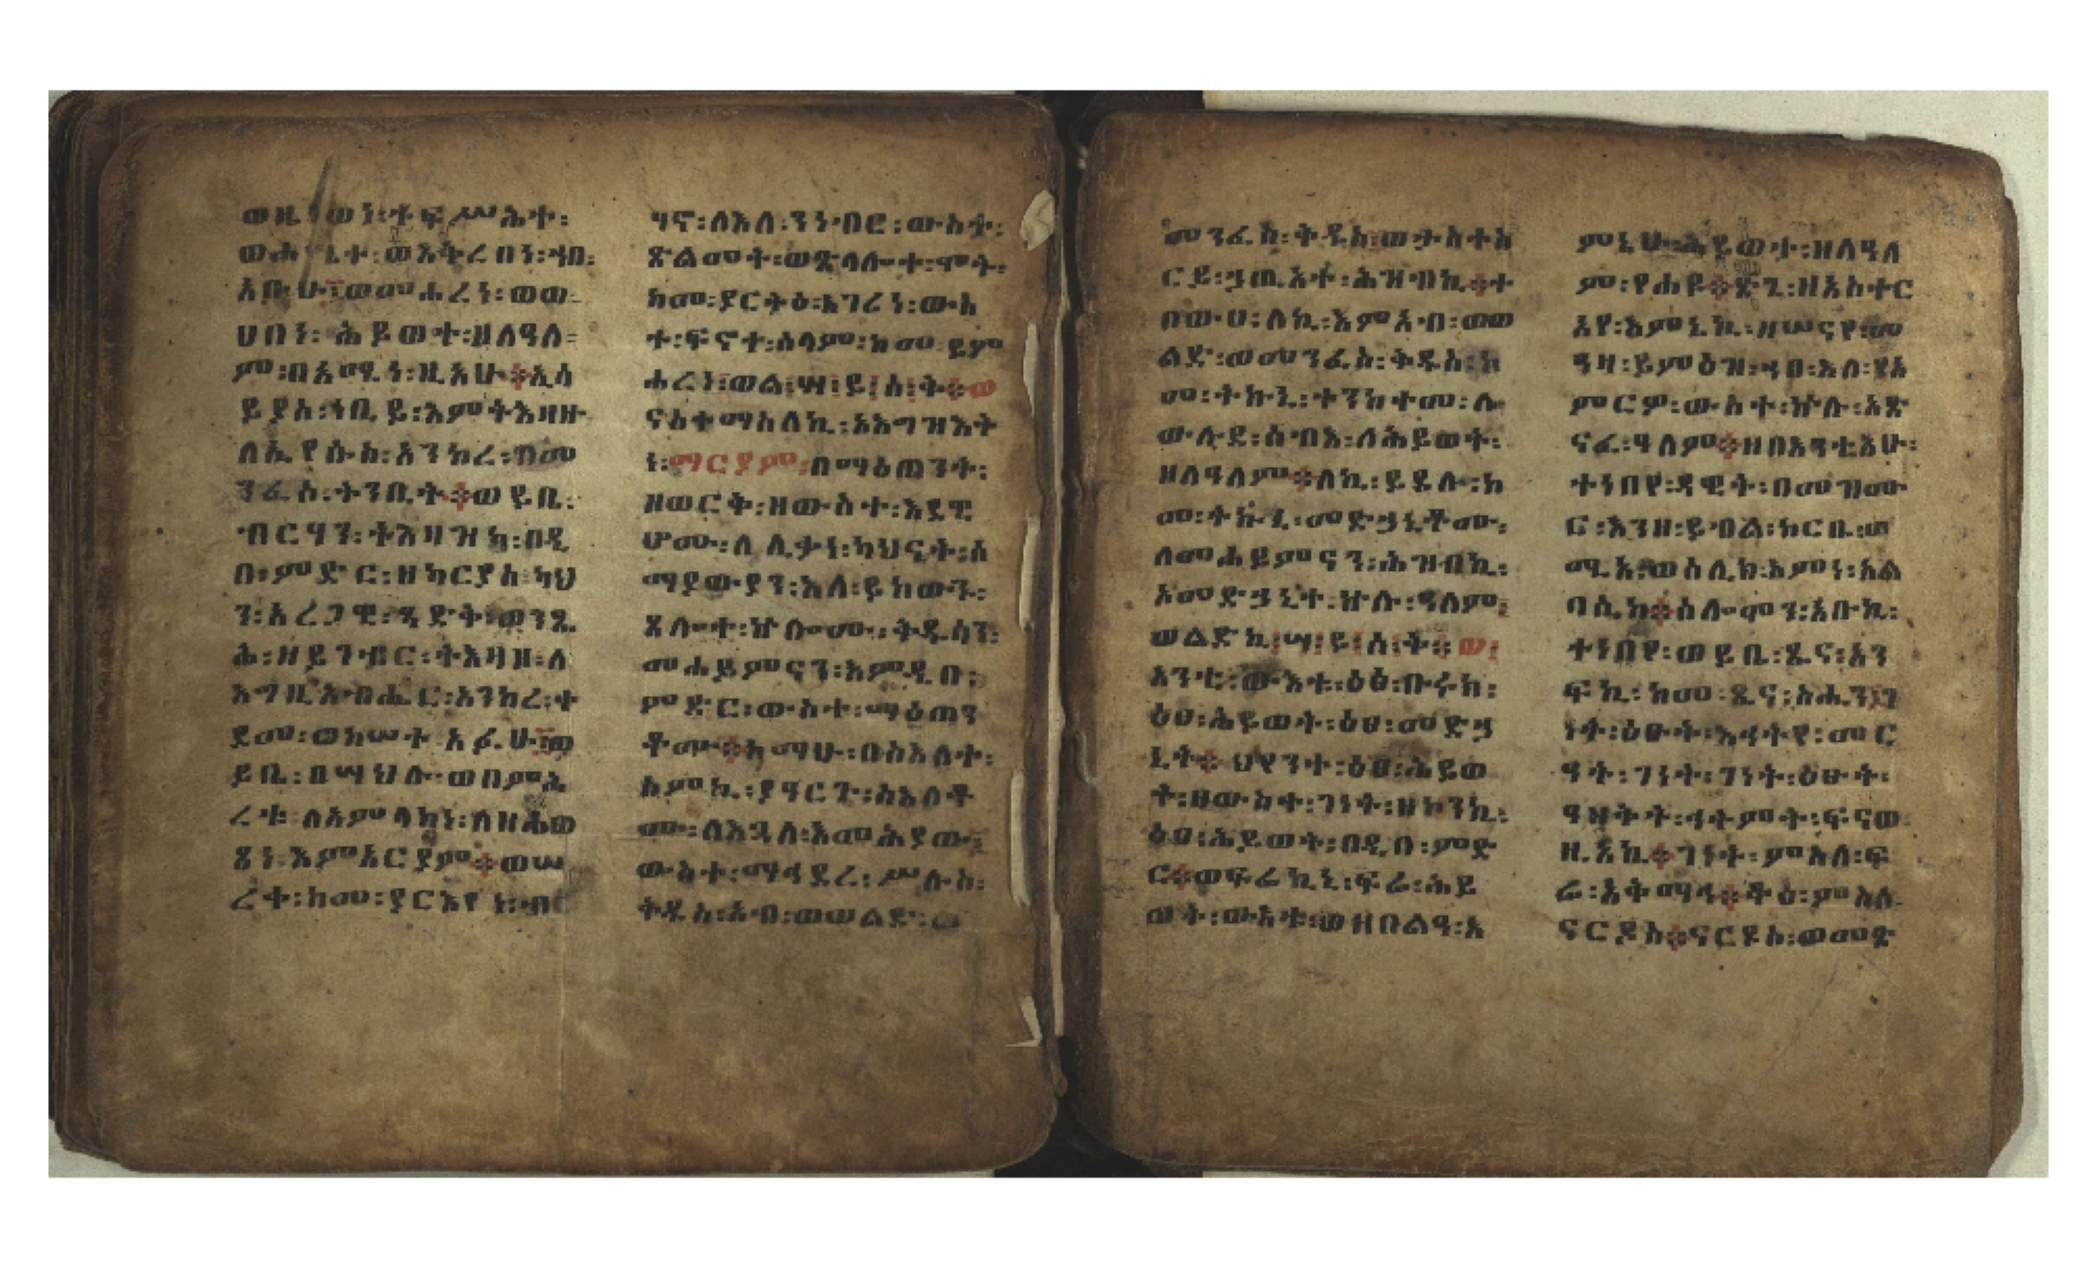 ወዜነወነ፡ተፍሥሕተ፡
ወሐኔተ፡ወአቅረበነ፡ኀበ፡
አቡሁ፡ወመሐረነ፡ወወ
ሀበነ፡ሕይወተ፡ዘለዓለ
ም፡በአሚነ፡ዚአሁ፨ኢሳ
ይያስ፡ነቢይ፡እምትእዛዙ
ለኢየሱስ፡አንከረ፡በመ
ንፈሰ፡ትንቢት፨ወይቤ፡
ብርሃን፡ትእዛዝከ፡በዲ
በ፡ምድር፡ዘካርያስ፡ካህ
ን፡አረጋዊ፡ጻድቅ፡ወንጹ
ሕ፡ዘይገብር፡ትእዛዘ፡ለ
እግዚአብሔር፡አንከረ፡ተ
ደመ፡ወከሠተ፡አፉሁ፡ወ
ይቤ፡በሣህሉ፡ወበምሕ
ረቱ፡ለአምላክነ፡ለዘሐወ
ጸነ፡እምአርያም፨ወሠ
ረቀ፡ከመ፡ያርእየነ፡ብር
ሃኖ፡ለእለ፡ንነብር፡ውስተ፡
ጽልመት፡ወጽላሎተ፡ሞት፡
ከመ፡ያርትዕ፡እገረነ፡ውስ
ተ፡ፍኖተ፡ሰላም፡ከመ፡ይም
ሐረነ፡ወል፡ሣ፡ይ፡ስ፡ት፨ወ
ናስተማስለኪ፡እእግዝእት
ነ፡ማርያም፡በማዕጠንት፡
ዘወርቅ፡ዘውስተ፡እደዊ
ሆሙ፡ለሊቃነ፡ካህናት፡ሰ
ማያውያን፡እለ፡ይከውኑ፡
ጸሎተ፡ኵሎሙ፡ቅዱሳን፡
መሐይምናን፡እምዲበ፡
ምድር፡ውስተ፡ማዕጠን
ቶሙ፨አማሁ፡በስእለት፡
ስምኪ፡ያዓርጉ፡ስእለቶ
ሙ፡ለእጓለ፡እመሕያው፡
ውስተ፡ማኅደረ፡ሥሉስ፡
ቅዱስ፡አብ፡ወወልድ፡ወ
መንፈስ፡ቅዱስ፡ወታስተስ
ርይ፡ኃጢአተ፡ሕዝብኪ፨ተ
በውሀ፡ለኪ፡እምአብ፡ወወ
ልድ፡ወመንፈስ፡ቅዱስ፡ከ
መ፡ትኩኒ፡ተንከተመ፡ለ
ውሉደ፡ሰብእ፡ለሕይወት፡
ዘለዓለም፨ለኪ፡ይደሉ፡ከ
መ፡ትኩኒ፡መድኃኒቶሙ፡
ለመሐይምናን፡ሕዝብኪ፡
እመድኃኒተ፡ኵሉ፡ዓለም፡
ወልድኪ፡ሣ፡ይ፡ስ፡ት፨ወ፡
አንቲ፡ውእቱ፡ዕፅ፡ቡሩክ፡
ዕፀ፡ሕይወት፡ዕፀ፡መድኃ
ኒት፨ህየንተ፡ዕፀ፡ሕይወ
ት፡ዘውስተ፡ገነት፡ዘኮንኪ፡
ዕፀ፡ሕይወት፡በዲበ፡ምድ
ር፨ወፍሬኪኒ፡ፍሬ፡ሕይ
ወት፡ውእቱ፡ወዘበልዓ፡እ
ምኔሁ፡ሕይወተ፡ዘለዓለ
ም፡የሐዩ፨ጽጌ፡ዘአስተር
አየ፡እምኔኪ፡ዘሠናየ፡መ
ዓዛ፡ይምዕዝ፡ኀበ፡እለ፡የአ
ምርዎ፡ውስተ፡ኵሉ፡አጽ
ናፈ፡ዓለም፨ዘበእንቲአሁ፡
ተነበየ፡ዳዊት፡በመዝሙ
ር፡እንዘ፡ይብል፡ከርቤ፡ወ
ሚአ፡ወሰሊክ፡እምነ፡አል
ባሲከ፨ሰሎሞን፡አቡኪ፡
ተነበየ፡ወይቤ፡ጼና፡አን
ፍኪ፡ከመ፡ጼና፡ስሒን፡ገ
ነት፡ዕፁት፡እኅትየ፡መር
ዓት፡ገነት፡ገነት፡ዕፁት፡
ዓዘቅት፡ኅትምት፡ፍናወ
ዚአኪ፨ገነት፡ምስለ፡ፍ
ሬ፡አቅማሓ፨ቆዕ፡ምስለ
ናርዶስ፨ናርዶስ፡ወመጽ